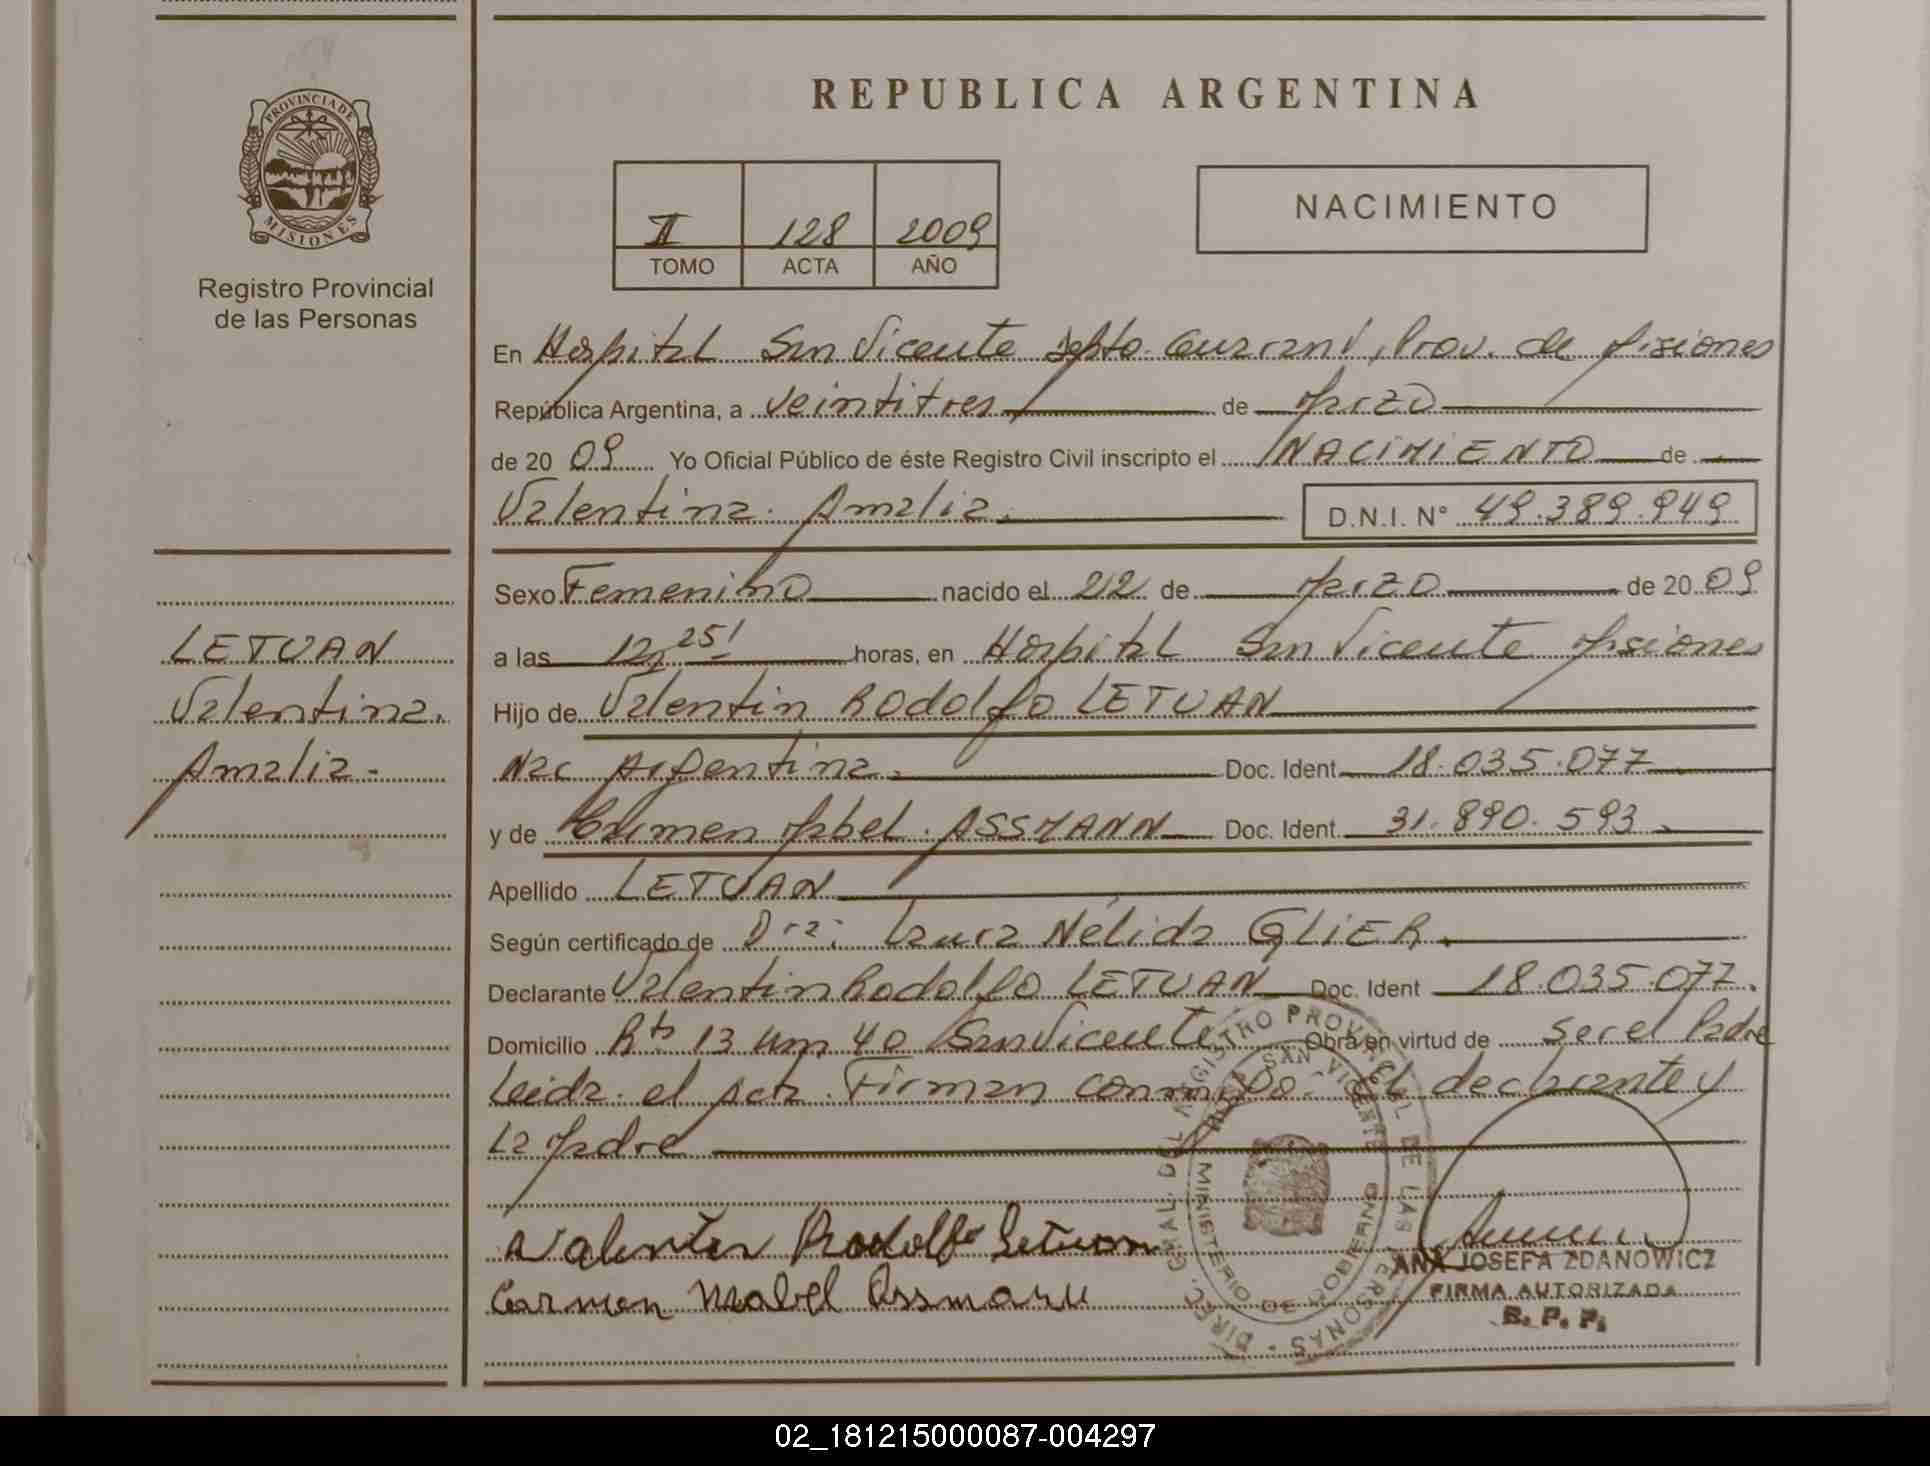 REPUBLICA ARGENTINA
PROVINCIA DE
MISIONES
Registro Provincial
de las Personas
II 128 2009
TOMO ACTA AÑO
NACIMIENTO
En Hospital San Vicente Depto. Guarani, Prov. de Misiones
República Argentina, a veintitres de Marzo
de 20 09 Yo Oficial Público de éste Registro Civil inscripto el NACIMIENTO de
Valentina Amalia. D.N.I. N° 49.389.949
Sexo Femenino nacido el 22 de Marzo de 20 09
a las 12, 25' horas, en Hospital San Vicente Misiones
Hijo de Valentin Rodolfo LETUAN
Nac Argentina. Doc. Ident 18.035.077
y de Carmen Mabel ASSMANN Doc. Ident. 31.890.593.
Apellido LETUAN
Según certificado de Dra: Laura Nélida GLIER.
Declarante Valentin Rodolfo LETUAN Doc. Ident 18.035.077.
Domicilio Rta 13 Km 40 San Vicente Obra en virtud de ser el Padre
Leida el Acta Firman conmigo. El declarante y
La Madre
Valentin Rodolfo Letuan
Carmen Mabel Assmann
LETUAN
Valentina.
Amalia-
DIREC. GRAL. DEL REGISTRO PROVINCIAL DE LAS PERSONAS
SAN VICENTE
MINISTERIO DE GOBIERNO
ANA JOSEFA ZDANOWICZ
FIRMA AUTORIZADA
R. P. P.
02_181215000087-004297